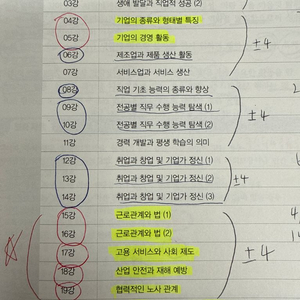 03강 생애 발달과 직업적 성공 (2)
04강 기업의 종류와 형태별 특징
05강 기업의 경영 활동
±4
06강 제조업과 제품 생산 활동
07강 서비스업과 서비스 생산
08강 직업 기초 능력의 종류와 향상
09강 전공별 직무 수행 능력 탐색 (1)
±4
10강 전공별 직무 수행 능력 탐색 (2)
11강 경력 개발과 평생 학습의 의미
12강 취업과 창업 및 기업가 정신 (1)
13강 취업과 창업 및 기업가 정신 (2)
±4
14강 취업과 창업 및 기업가 정신 (3)
15강 근로관계와 법 (1)
16강 근로관계와 법 (2)
17강 고용 서비스와 사회 제도
±4
18강 산업 안전과 재해 예방
19강 협력적인 노사 관계